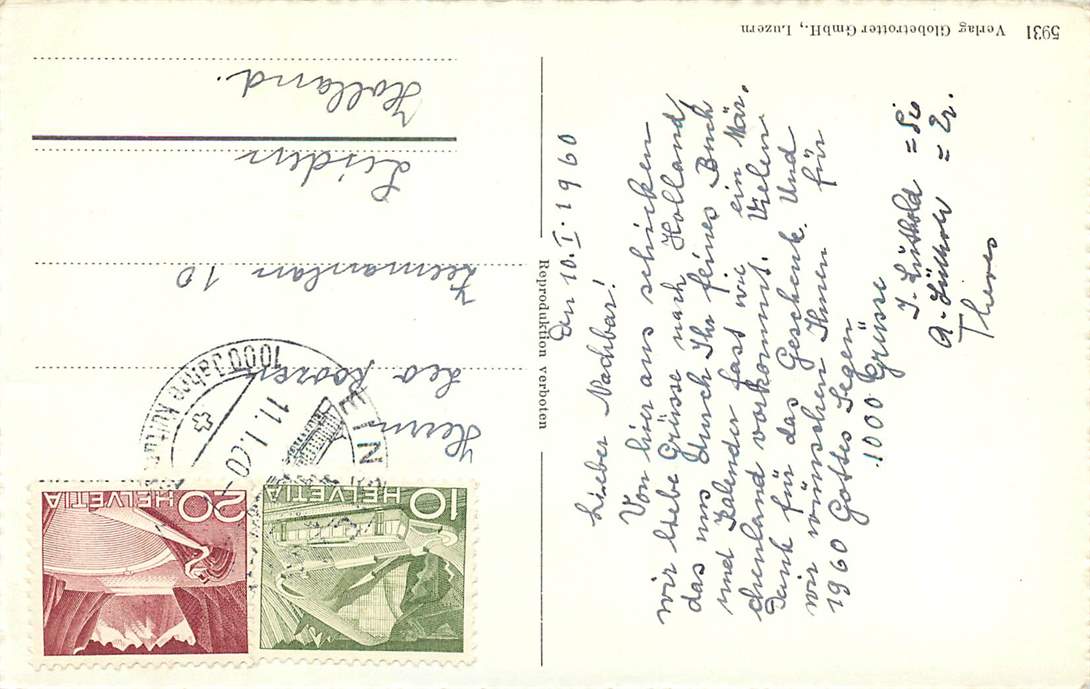 Den 10. I. 1960
Lieber Nachbar!
Von hier aus schicken
wir liebe Grüsse nach Holland,
das uns durch Ihr feines Buch
und Kalender fast wie ein Mär-
chenland vorkommt. Vielen
Dank für das Geschenk. Und
wir wünschen Ihnen für
1960 Gottes Segen
1000 Grüsse
J. Lüthold = Sie
A. Lüthold = Er.
Theres
Herrn
Leo
Zeemanlaan 10
Leiden
Holland.
Reproduktion verboten
5931 Verlag Globetrotter GmbH., Luzern
1000 Jahre
11.1.60
EIN
20
HELVETIA
10
HELVETIA